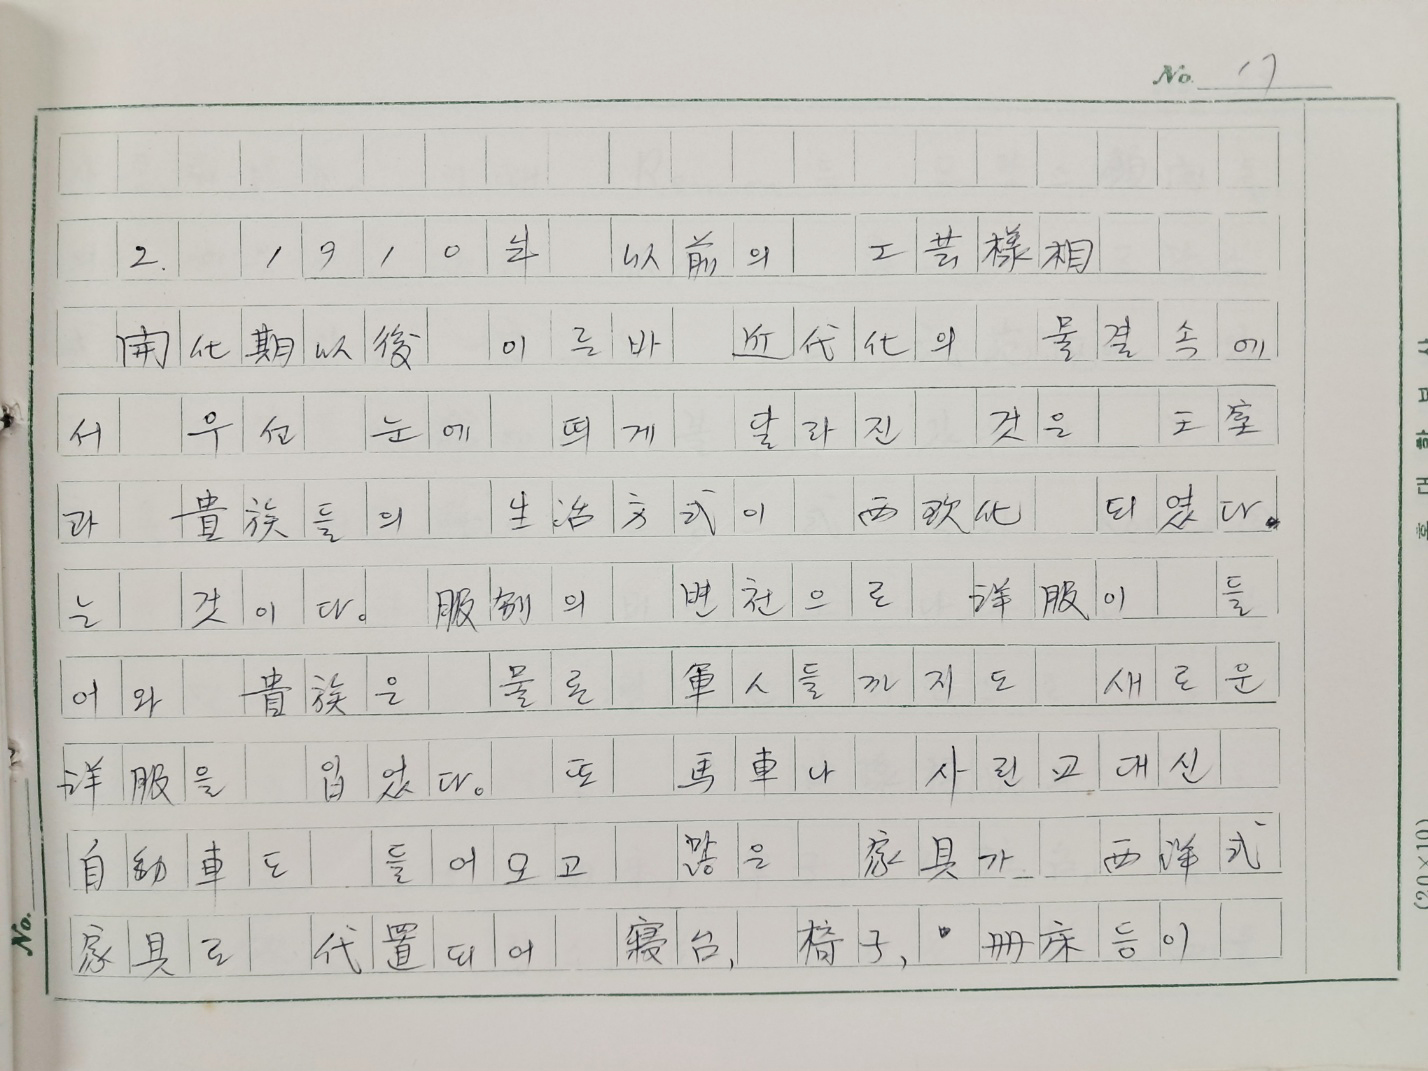 No. 17
2. 1910年 以前의 工芸樣相
開化期以後 이르바 近代化의 물결속에
서 우선 눈에 띄게 달라진 것은 王室
과 貴族들의 生活方式이 西欧化 되였다.
는 것이다. 服制의 변천으로 洋服이 들
어와 貴族은 물론 軍人들까지도 새로운
洋服을 입었다. 또 馬車나 사린교대신
自動車도 들어오고 많은 家具가 西洋式
家具로 代置되어 寝台, 椅子, 冊床등이
No.
(20×10)